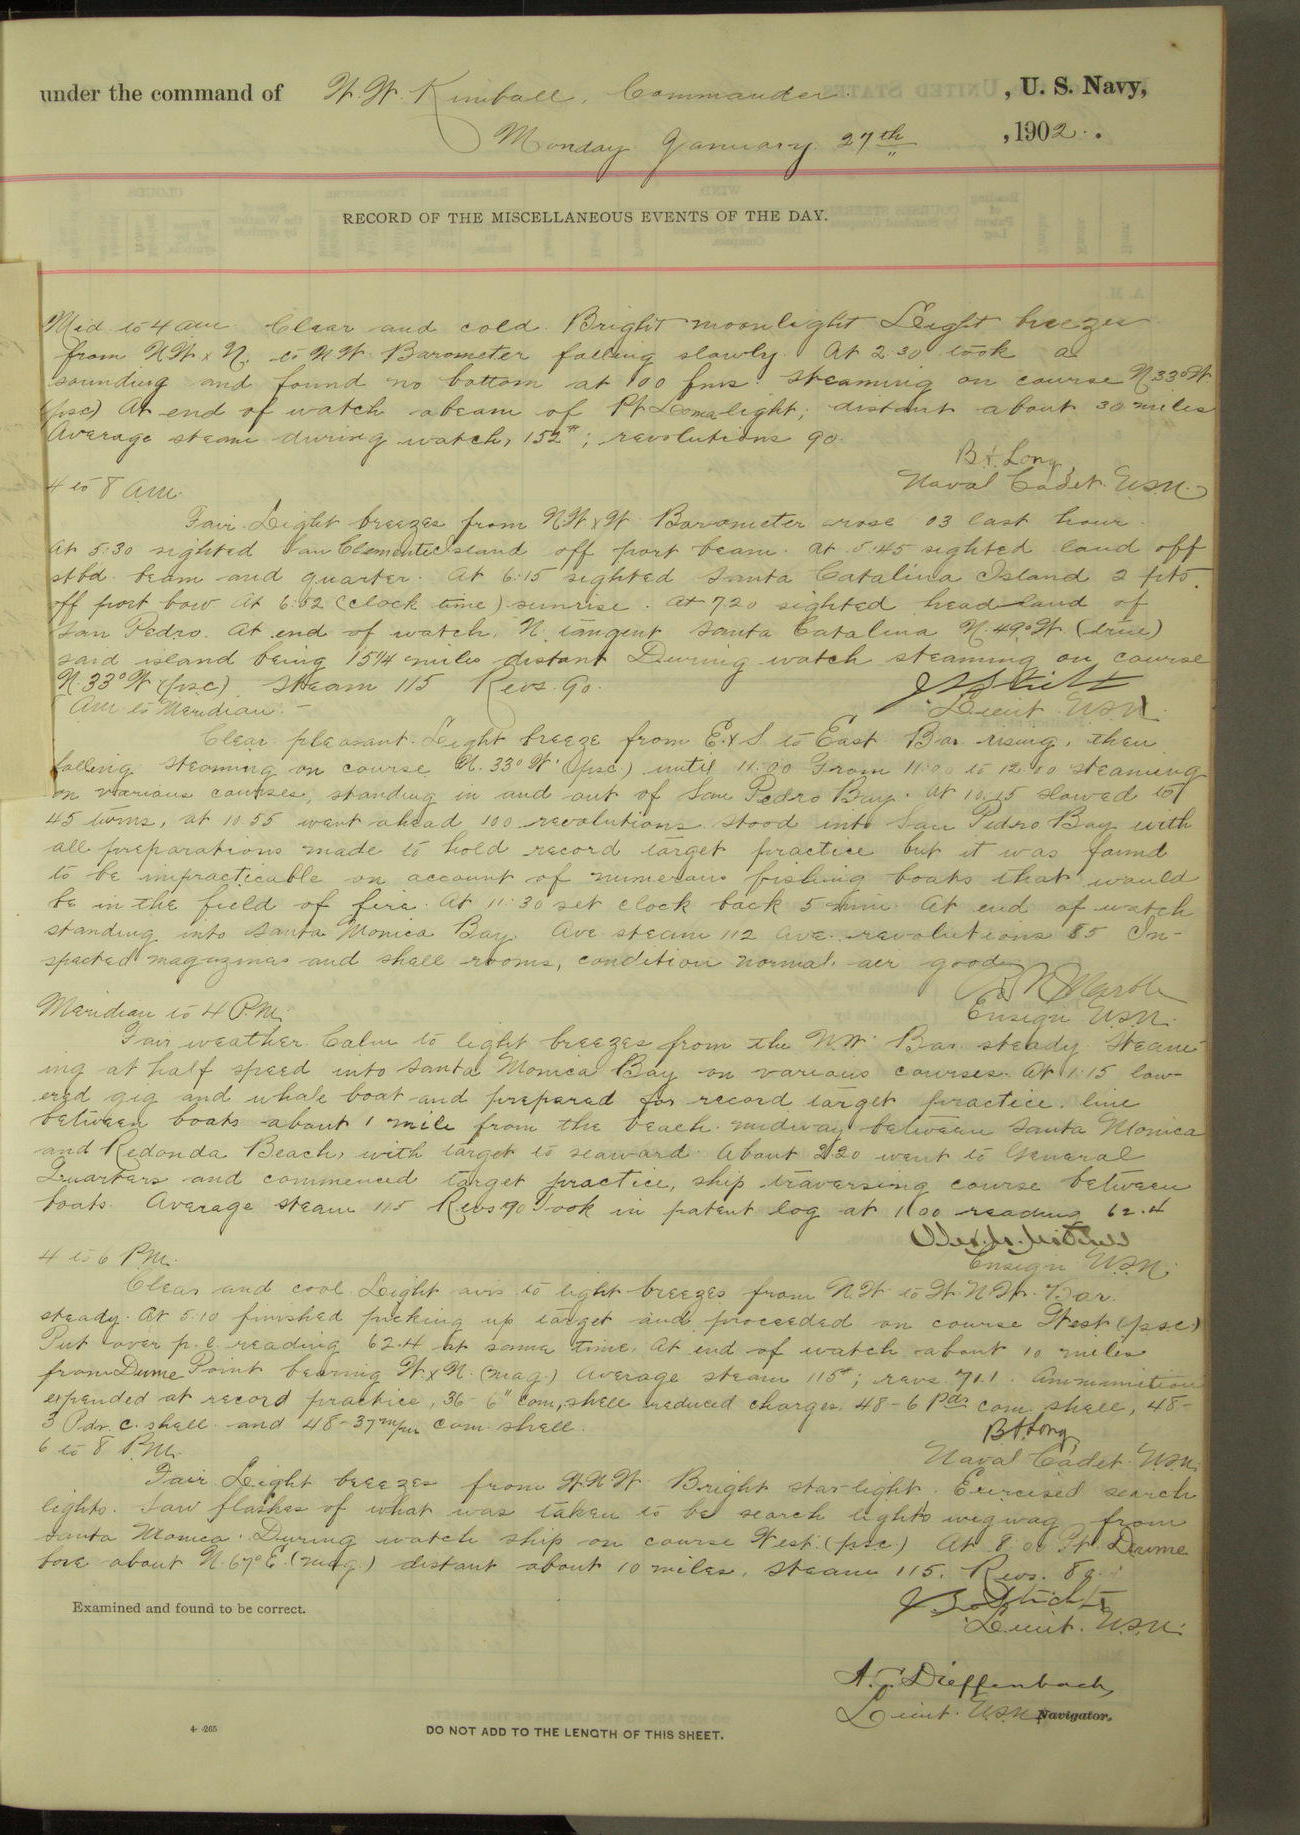 under the command of W. W. Kimball, Commander. , U. S. Navy,
Monday January 27th , 1902.
RECORD OF THE MISCELLANEOUS EVENTS OF THE DAY.
Mid to 4 am Clear and cold. Bright moonlight Light breezes
from NW x N. to NW. Barometer falling slowly. At 2.30 took a
sounding and found no bottom at 100 fms. Steaming on course N 33° W
(psc) At end of watch abeam of Pt Loma light; distant about 30 miles
Average steam during watch, 152#; revolutions 90.
Long,
Naval Cadet. U.S.N.
4 to 8 A.M.
Fair. Light breezes from NW x W Barometer rose 03 last hour.
At 5:30 sighted San Clemente Island off port beam. At 5:45 sighted land off
stbd. beam and quarter. At 6:15 sighted Santa Catalina Island 2 pts.
off port bow At 6:52 (clock time) sunrise. At 7.20 sighted head land of
San Pedro. At end of watch, N. tangent Santa Catalina N. 49° W. (true)
said island being 15 1/4 miles distant During watch steaming on course
N. 33° W (psc). Steam 115 Revs. 90.
Lieut. U.S.N.
AM to Meridian. -
Clear pleasant. Light breeze from E x S to East Bar rising, then
falling Steaming on course N. 33° W. (psc) until 11:00 From 11:00 to 12.00 steaming
on various courses, standing in and out of San Pedro Bay. At 10.15 slowed to
45 turns, at 10.55 went ahead 100 revolutions Stood into San Pedro Bay with
all preparations made to hold record target practice but it was found
to be impracticable on account of numerous fishing boats that would
be in the field of fire. At 11:30 set clock back 5 min. At end of watch
standing into Santa Monica Bay. Ave steam 112 Ave. revolutions 85 In-
spected magazines and shell rooms, condition normal, air good.
Marble
Ensign U.S.N.
Meridian to 4 P.M.
Fair weather. Calm to light breezes from the N.W. Bar. steady. Steam-
ing at half speed into Santa Monica Bay on various courses. At 1:15 low-
ered gig and whale boat and prepared for record target practice. line
between boats about 1 mile from the beach. midway between Santa Monica
and Redonda Beach, with target to seaward. About 2.20 went to General
Quarters and commenced target practice, ship traversing course between
boats. Average steam 115 Revs 70 Took in patent log at 1:00 reading 62.4
Ensign U.S.N.
4 to 6 P.M.
Clear and cool. Light airs to light breezes from N.W. to W.N.W. Bar.
steady. At 5.10 finished picking up target and proceeded on course West (psc)
Put over p. l. reading 62.4 at same time. At end of watch about 10 miles
from Dume Point bearing W x N. (mag.) Average steam 115#; revs. 71.1. Ammunition
expended at record practice, 36 - 6" com, shell reduced charges. 48 - 6 Pdr. com. shell, 48-
3 Pdr. c. shell. and 48 - 37 m/m com. shell.
Long,
Naval Cadet. U.S.N.
6 to 8 P.M.
Fair. Light breezes from WNW. Bright starlight. Exercised search
lights. Saw flashes of what was taken to be search lights wigwag from
Santa Monica. During watch ship on course West. (psc) At 8:00 Pt. Dume
bore about N. 67° E. (mag.) distant about 10 miles. Steam 115. Revs.
Lieut. U.S.N.
Examined and found to be correct.
Dieffenbach,
Lieut. U.S.N. Navigator.
4-265
DO NOT ADD TO THE LENGTH OF THIS SHEET.